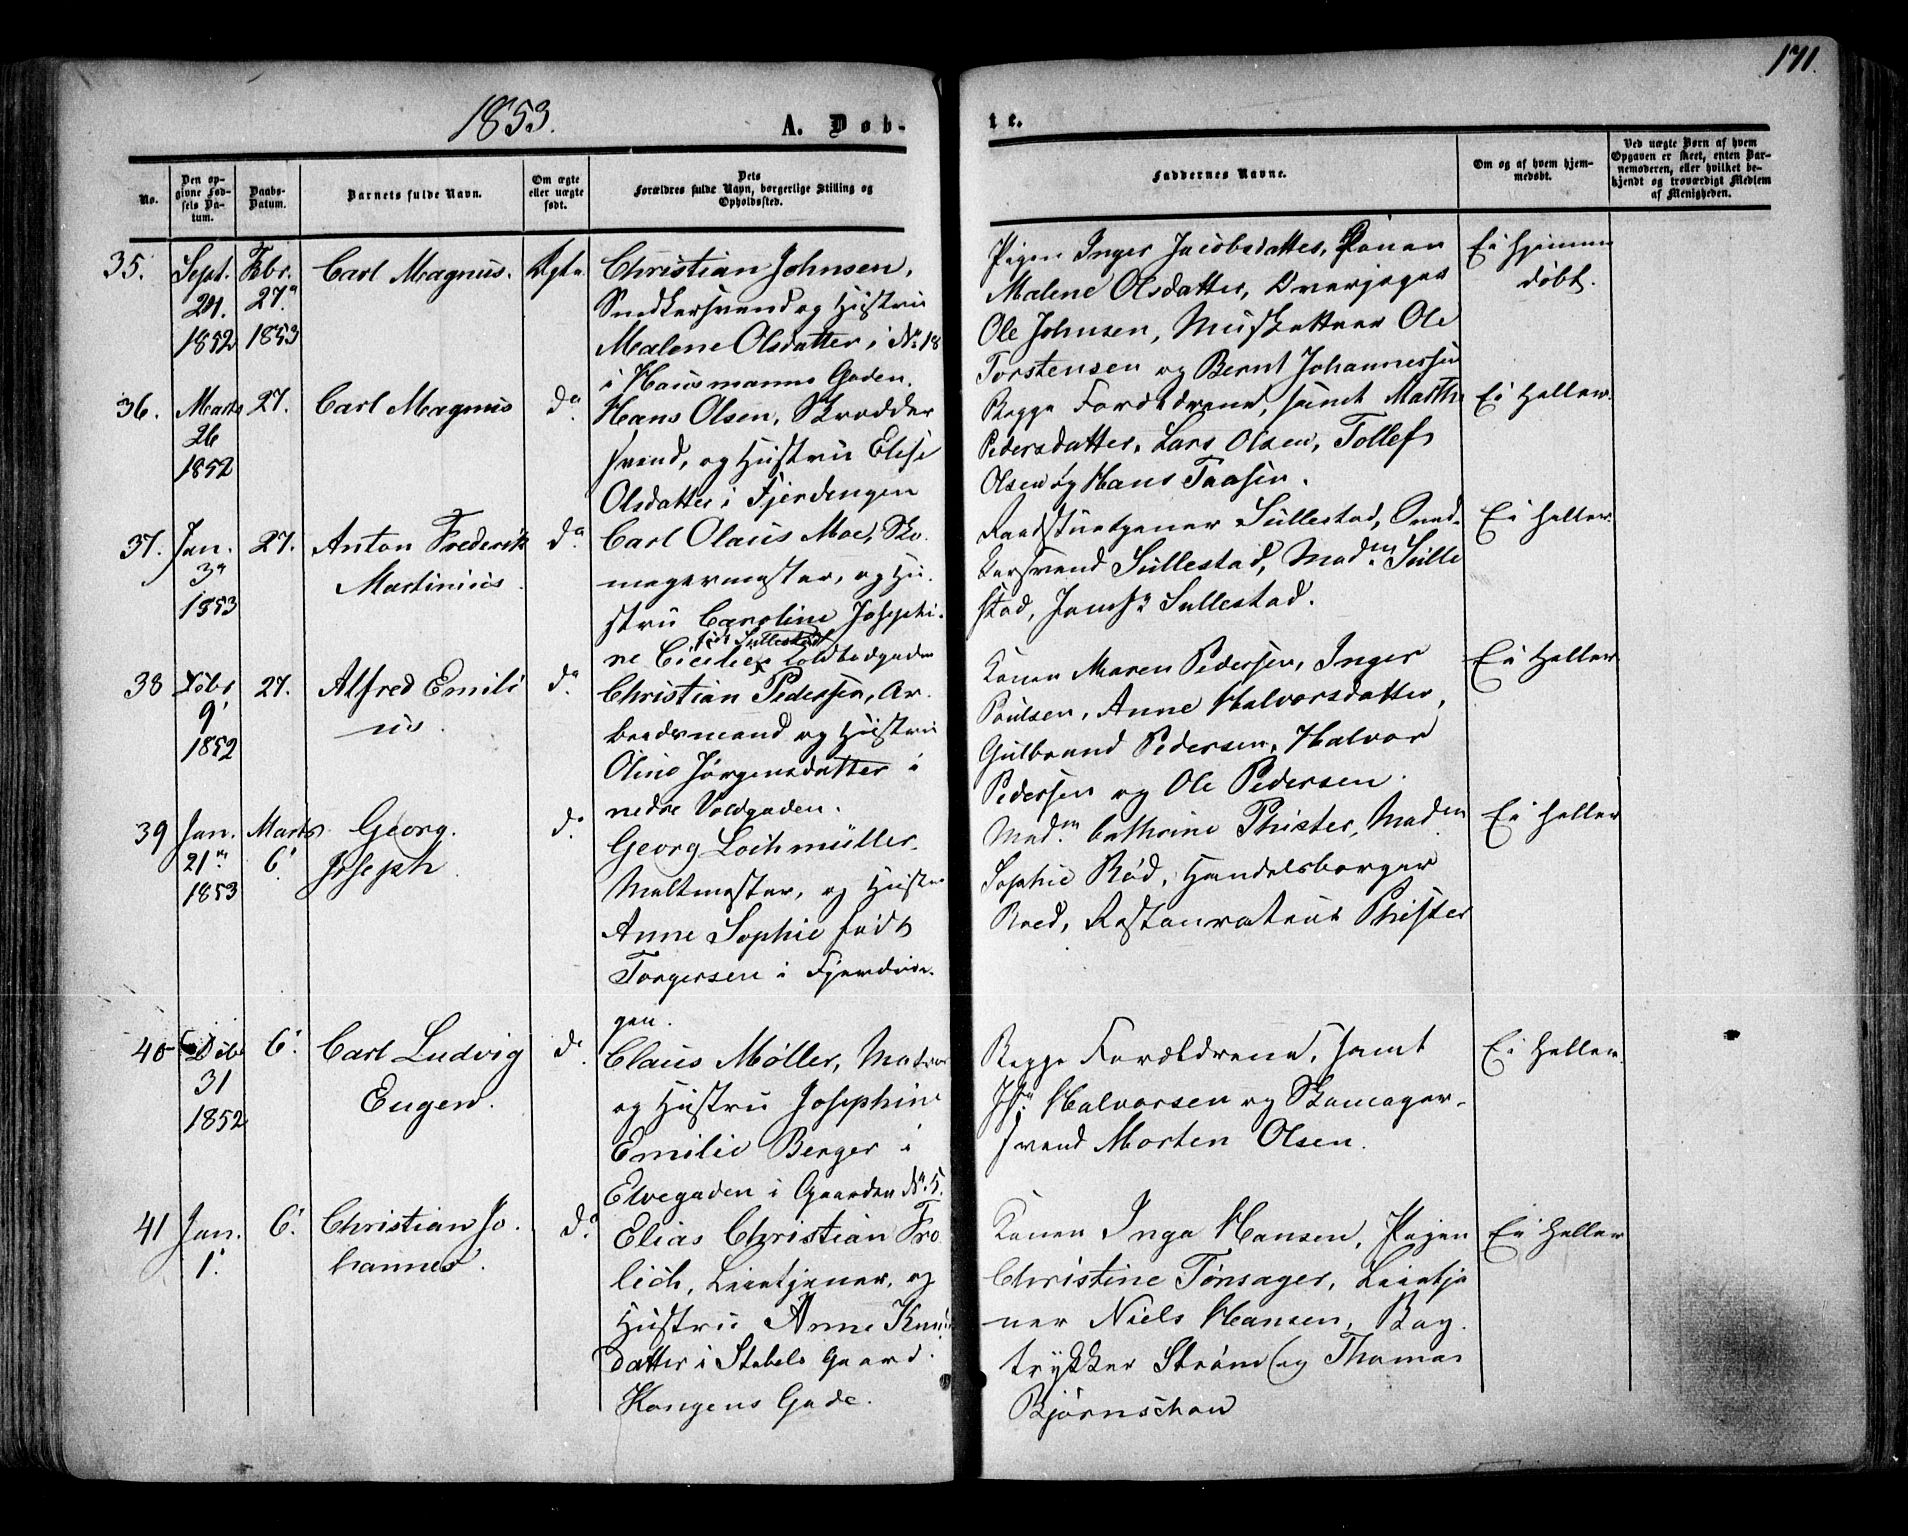 171.
1853.
A. Døb-
te.
No.
Den op-
givne Fød-
sels Da-
tum.
Daabs-
Datum.
Barnets fulde Navn.
Om ægte
eller uægte
født.
Dets
Forældres fulde Navn, borgerlige Stilling og
Opholdssted.
Faddernes Navne.
Om og af hvem hjem-
medøbt.
Ved uægte Børn af hvem
Opgaven er skeet, enten Bar-
nemoderen, eller hvilket be-
kjendt og troværdigt Medlem
af Menigheden.
35.
Sept.
24.
1852
Febr.
27.
1853
Carl Magnus.
Ægte
Christian Johnsen,
Snedkersvend og Hustru
Malene Olsdatter i No. 18
i Hausmanns Gaden.
Pigen Inger Jacobsdatter, Konen
Malene Olsdatter, Overjæger
Ole Johnsen, Musketteer Ole
Torstensen og Bernt Johannessen
Ei hjemme
døbt.
36.
Marts
26
1852
27.
Carl Magnus
do.
Hans Olsen, Skrædder
svend, og Hustru Elise
Olsdatter i Fjerdingen
Begge Forældrene, samt Mathe
Pedersdatter, Lars Olsen, Tollef
Olsen og Hans Taasen.
Ei heller.
37.
Jan.
3
1853
27.
Anton Frederik
Martinius.
do.
Carl Olaus Moe, Sko-
magermester, og Hu-
stru Caroline Josephi-
født Sullestad
ne Cicilie Toldbodgaden
Raadstuetjener Sullestad, Sned-
kersvend Sullestad, Madm. Sulle
stad, Jomfr. Sullestad.
Ei heller
38
Debr
9'
1852
27.
Alfred Emili
us.
do.
Christian Pedersen, Ar-
beidsmand og Hustru
Oline Jørgensdatter i
nedre Voldgaden.
Konen Maren Pedersen, Inger
Poulsen, Anne Halvorsdatter,
Gulbrand Pedersen, Halvor
Pedersen og Ole Pedersen.
Ei heller
39
Jan.
21
1853
Marts
6'
Georg
Joseph.
do.
Georg Lochmüller
Maltmester, og Hustru
Anne Sophie født
Torgersen i Fjerdin-
gen.
Madm. Cathrine Phister, Madm
Sophie Røed, Handelsborger
Roed, Restaurateur Phister
Ei heller
40
Debr
31
1852
6'.
Carl Ludvig
Eugen.
do.
Claus Møller, Matros
og Hustru Josephine
Emilie Berger i
Elvegaden i Gaarden No. 5.
Begge Forældrene, samt
Jfr. Halvorsen og Skomager-
svend Morten Olsen.
Ei heller.
41
Jan.
1'.
6'.
Christian Jo-
hannes.
do.
Elias Christian Frø
lich, Leietjener, og
Hustru Anne Knuds
datter i Stabels Gaard.
Kongens Gade.
Konen Inga Hansen, Pigen
Christine Tønsager, Leietje
ner Niels Hansen, Bog-
trykker Strøm og Thomas
Bjørnschou
Ei heller